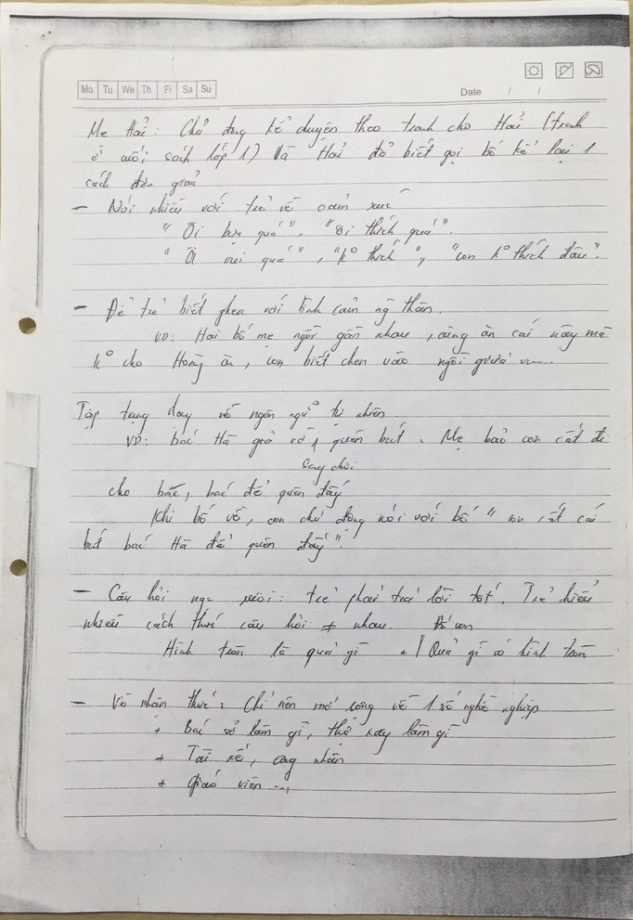 Mo Tu We Th Fi Sa Su
Date / /
Mẹ Hải: Chủ động kể chuyện theo tranh cho Hải (tranh
ở cuối sách lớp 1) Và Hải đã biết gọi bố kể lại 1
cách đơn giản
- Nói nhiều với trẻ về cảm xúc
"Ôi bực quá", "Ôi thích quá".
"Ôi vui quá", "ko thích", "con ko thích đâu".
- Để trẻ biết ghen với tình cảm ng thân.
VD: Hai bố mẹ ngồi gần nhau, cùng ăn cái này mà
ko cho Hoàng ăn, con biết chen vào ngồi giữa
Tập trung dạy về ngôn ngữ tự nhiên
VD: bác Hà giả vờ quên bút. Mẹ bảo con cất đi
sang chơi
cho bác, bác để quên đấy
Khi bố về, con chủ động nói với bố "con cất cái
bút bác Hà để quên đấy".
- Câu hỏi ngc xuôi: trẻ phải trả lời tốt. Trẻ hiểu
nhiều cách thức câu hỏi ≠ nhau. Đố con
Hình tròn là quả gì Quả gì có hình tròn
- Về nhận thức: Chỉ nên mở rộng về 1 số nghề nghiệp
+ Bác sĩ làm gì, thợ xây làm gì
+ Tài xế, công nhân
+ Giáo viên ...